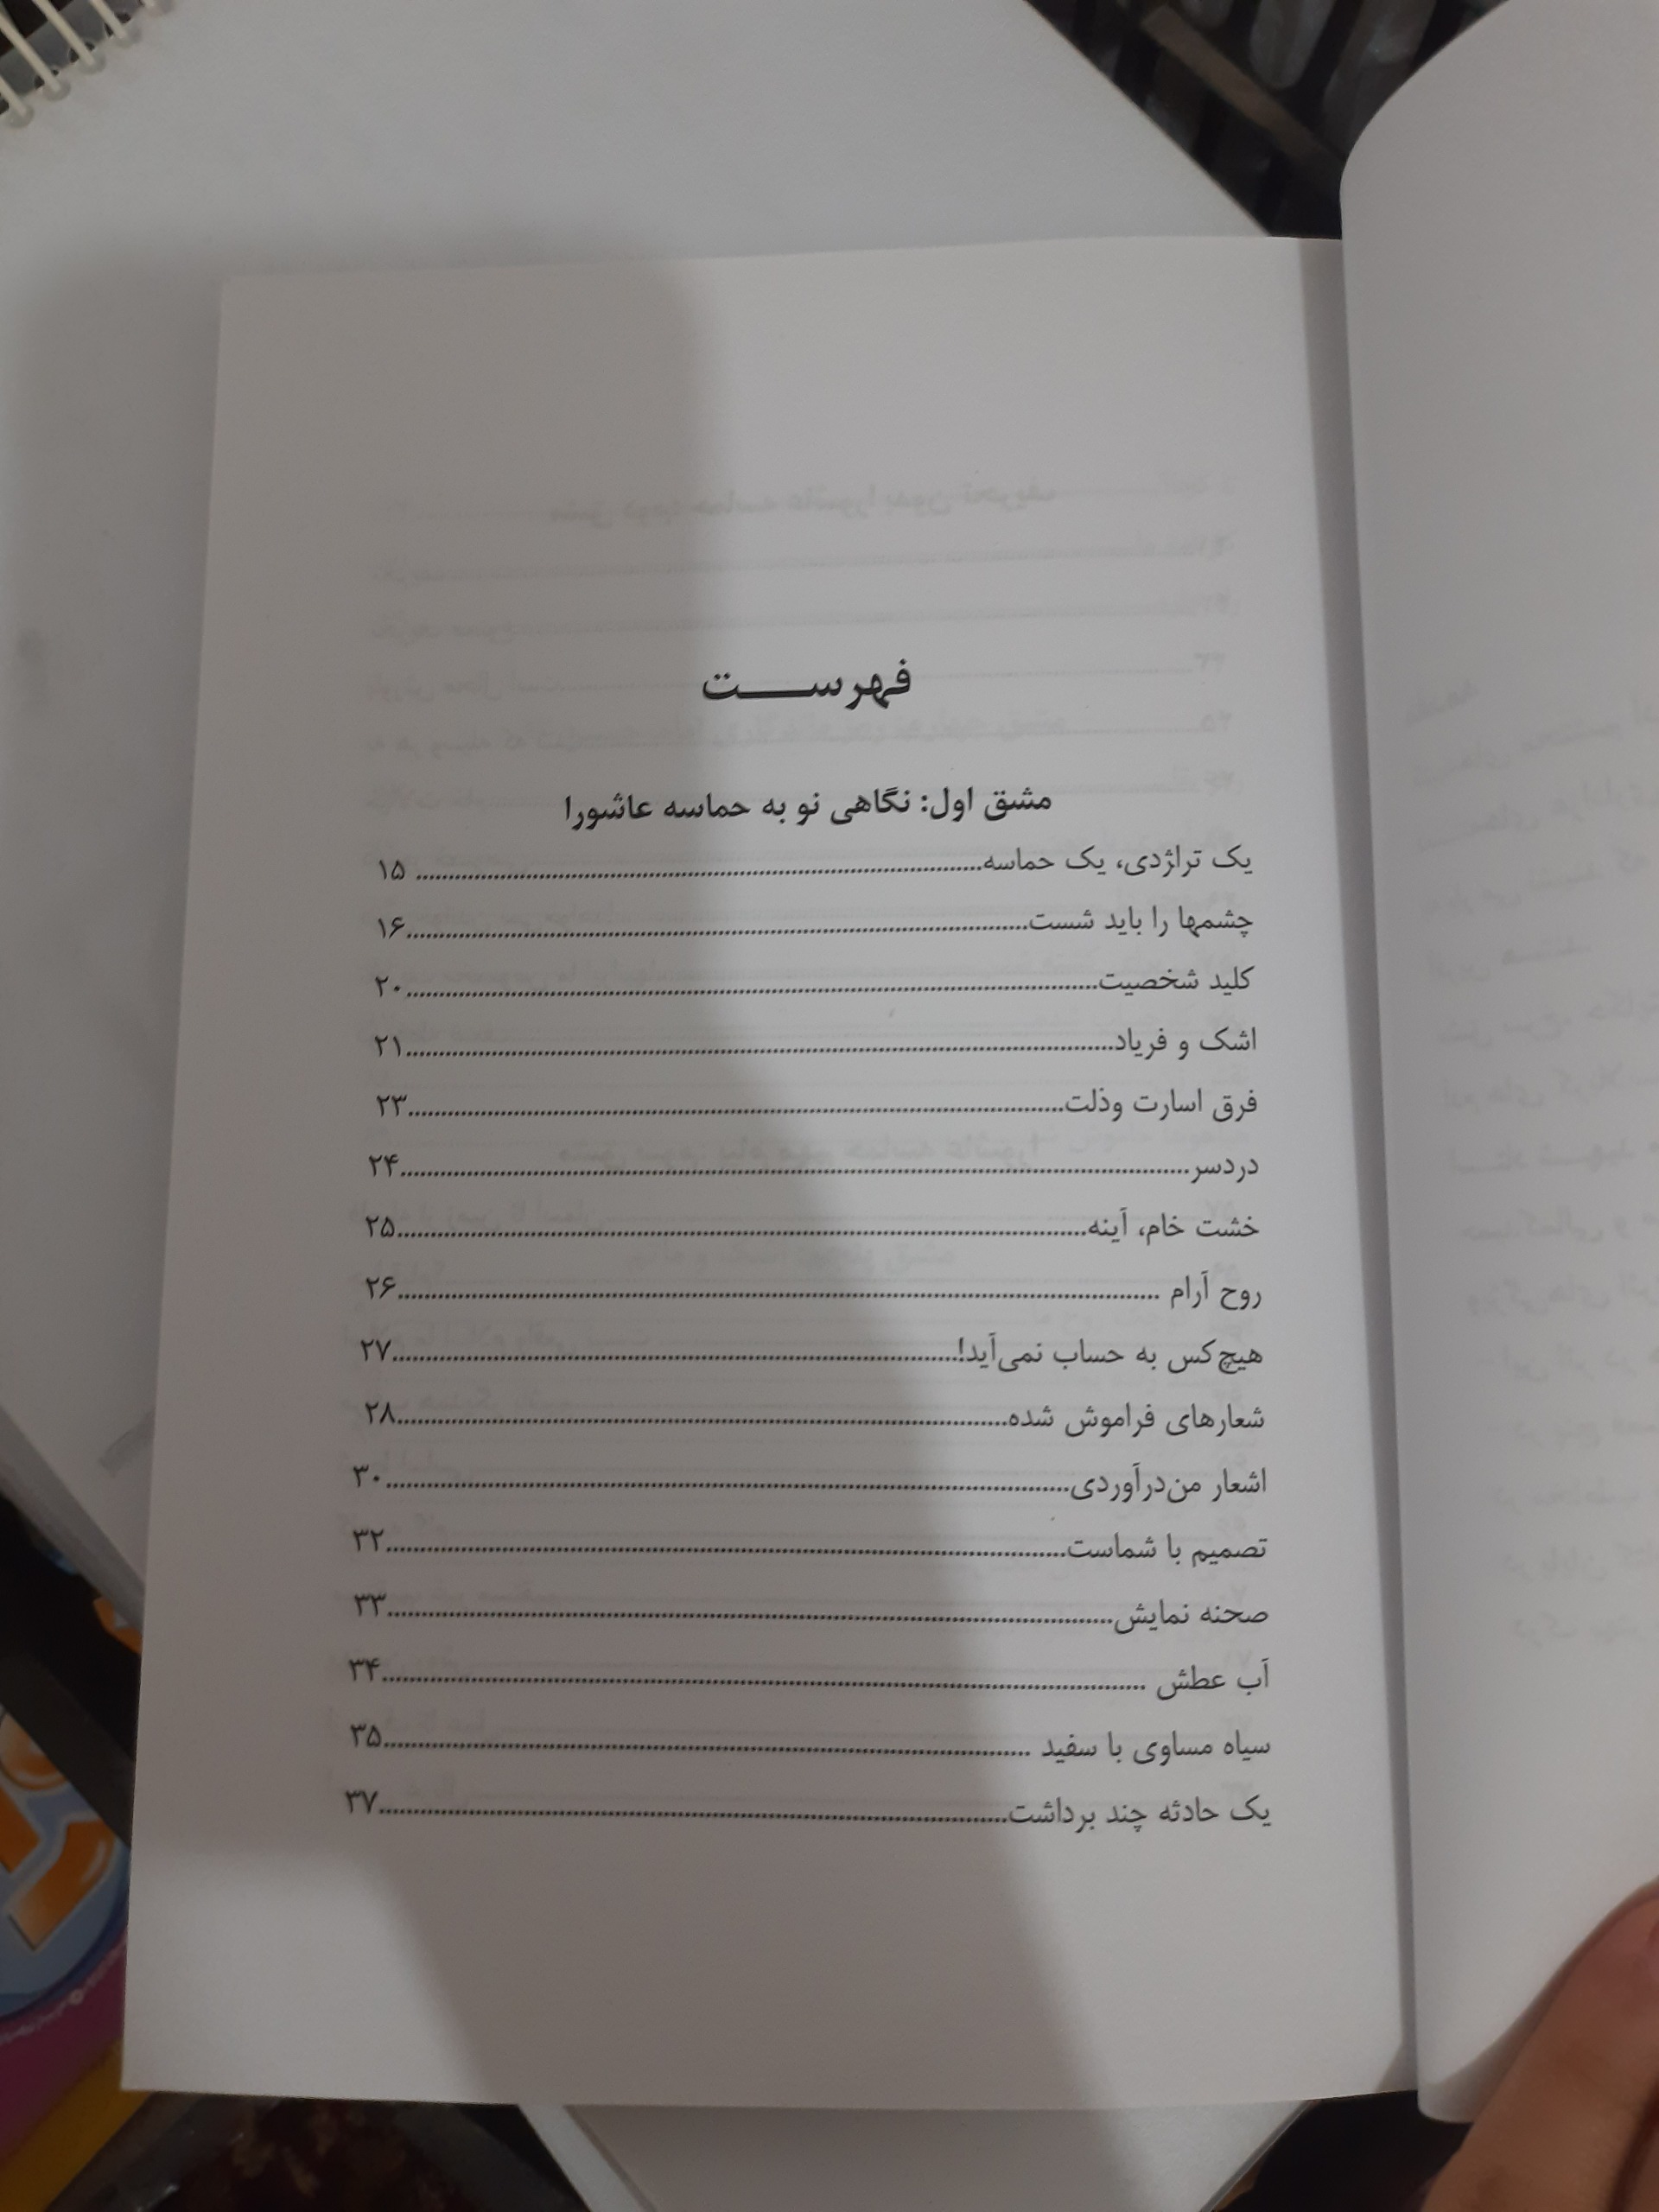 فهرست
مشق اول: نگاهی نو به حماسه عاشورا
یک تراژدی، یک حماسه........................ ۱۵
چشمها را باید شست........................۱۶
کلید شخصیت........................۲۰
اشک و فریاد........................۲۱
فرق اسارت وذلت........................۲۳
دردسر........................۲۴
خشت خام، آینه........................۲۵
روح آرام ........................۲۶
هیچ‌کس به حساب نمی‌آید!........................۲۷
شعارهای فراموش شده........................۲۸
اشعار من‌درآوردی........................۳۰
تصمیم با شماست........................۳۲
صحنه نمایش........................۳۳
آب عطش ........................۳۴
سیاه مساوی با سفید ........................۳۵
یک حادثه چند برداشت........................۳۷